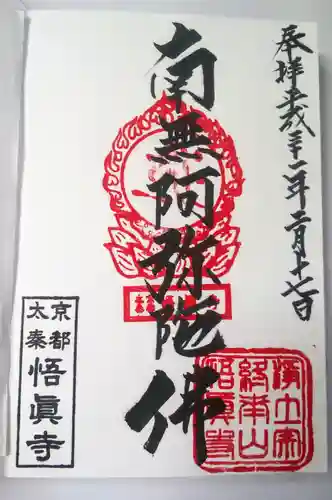 奉拝 平成三十一年二月十七日
南無阿弥陀佛
京都
太秦
悟眞寺
浄土宗
終南山
悟眞寺